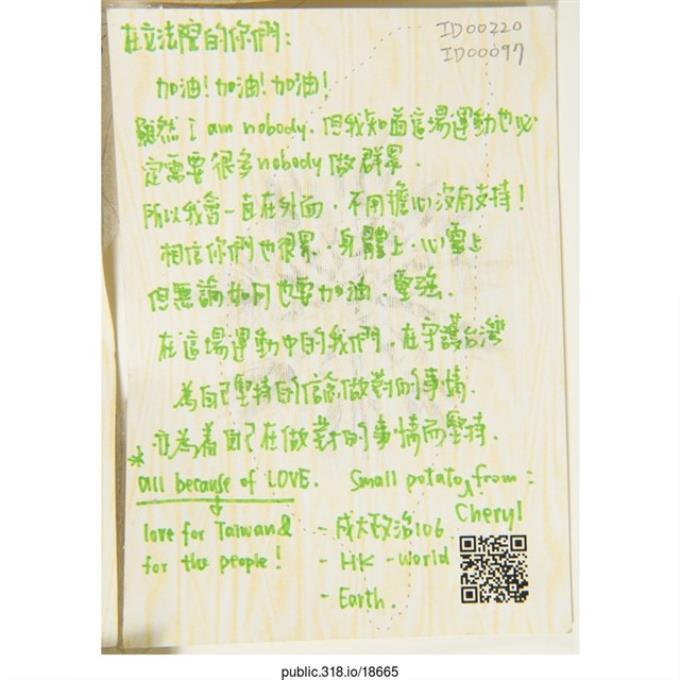 在立法院的你們：
ID00220
ID00097
加油！加油！加油！
雖然 I am nobody. 但我知道這場運動也必
定需要很多 nobody 做群眾.
所以我會一直在外面，不用擔心沒有支持！
相信你們也很累，身體上、心靈上
但無論如何也要加油，堅強.
在這場運動中的我們，在守護台灣
為自己堅持的信念做對的事情.
亦為著自己在做對的事情而堅持.
* all because of LOVE.
love for Taiwan &
for the people!
Small potato, from:
Cheryl
- 成大政治106
- HK - World
- Earth.
public.318.io/18665